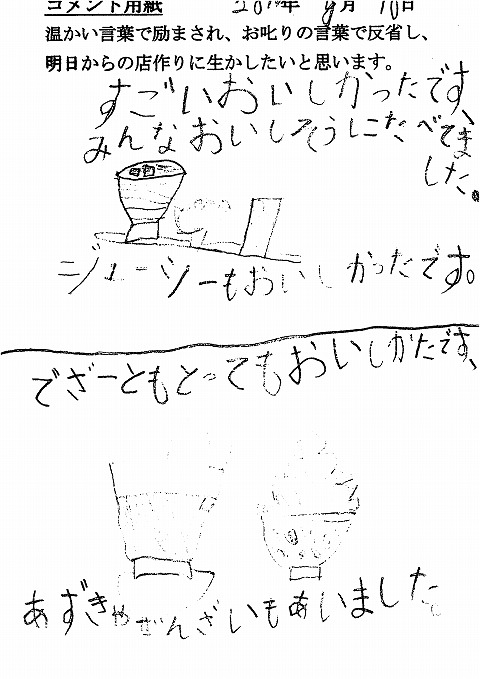 コメント用紙 年 月 10日
温かい言葉で励まされ、お叱りの言葉で反省し、
明日からの店作りに生かしたいと思います。
すごいおいしかったです、
みんなおいしそうにたべてま
した。
ジューシーもおいしかったです。
でざーともとってもおいしかたです、
あずきやぜんざいもあいました